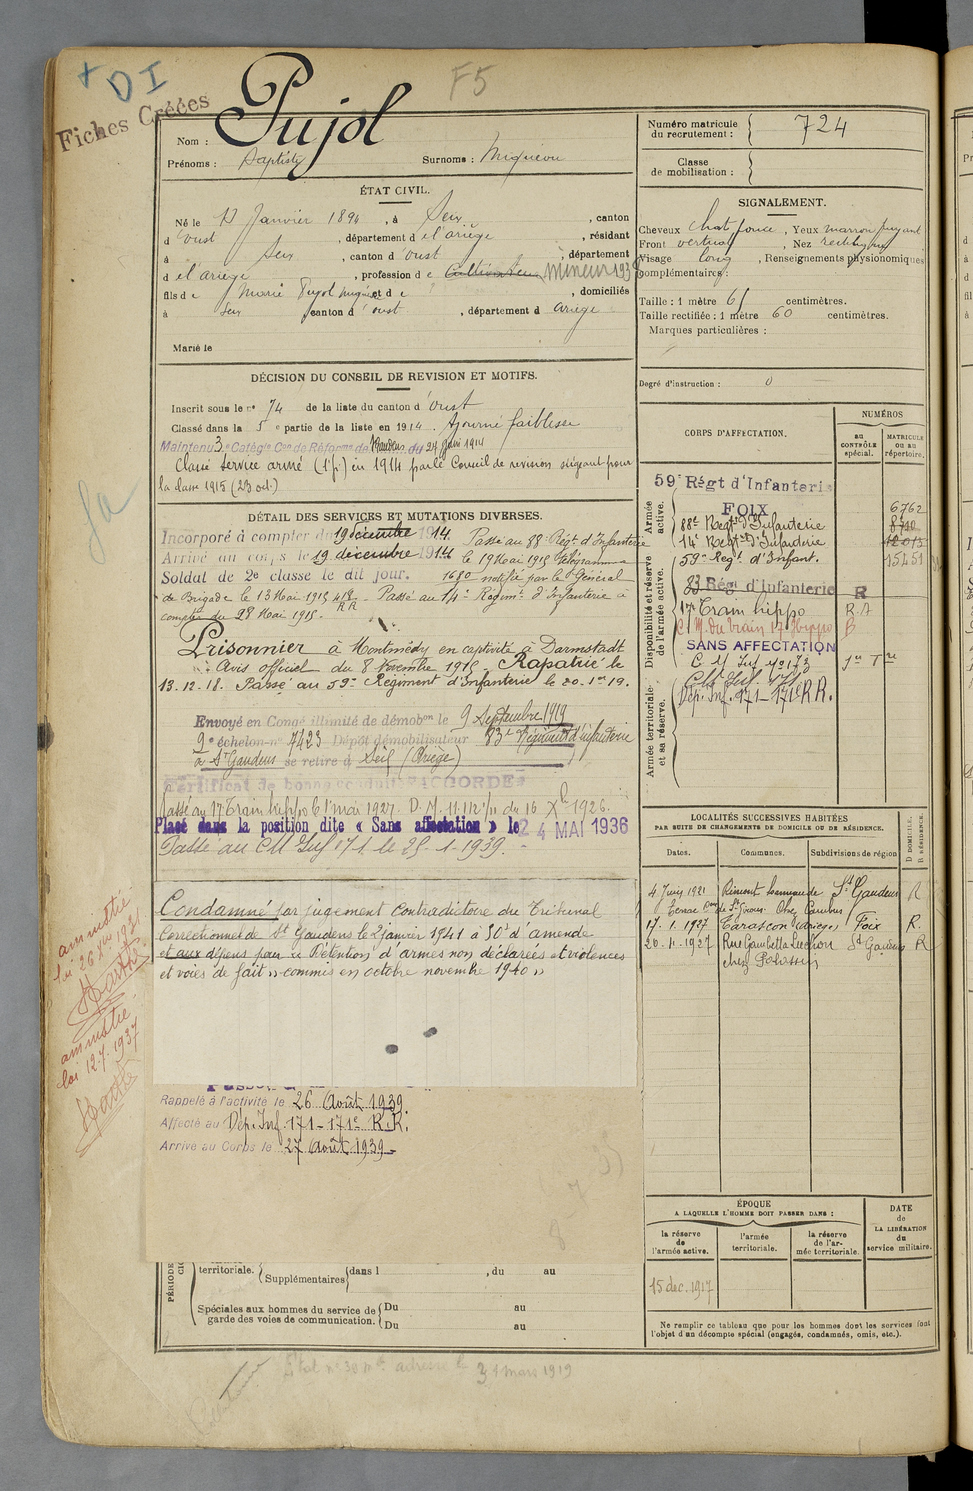 + DI
F5
Fiches Créées
Pujol
Nom :
Prénoms : Baptiste Surnoms : Miquéou
ÉTAT CIVIL.
Né le 13 Janvier 1894, à Seix, canton
d'Oust, département de l'ariège, résidant
à Seix, canton d'Oust, département
de l'ariège, profession de Cultivateur Mineur 1938
fils de Marie Pujol et de ?, domiciliés
à Seix canton d'oust, département d ariège
Marié le
DÉCISION DU CONSEIL DE REVISION ET MOTIFS.
Inscrit sous le n° 74 de la liste du canton d'Oust
Classé dans la 5e partie de la liste en 1914. Ajourné faiblesse
Maintenu 3e Catég. Con de Réforme de du 24 Juin 1914
Classé service armé (1ère p.) en 1914 par le Conseil de revision siégeant pour
la classe 1915 (23 oct.)
DÉTAIL DES SERVICES ET MUTATIONS DIVERSES.
Incorporé à compter du 19 décembre 1914. Passé au 88e Régt d'Infanterie
Arrivé au corps le 19 décembre 1914 le 19 Mai 1915 Télégramme
Soldat de 2e classe le dit jour. 1680 notifié par le Général
de Brigade le 13 Mai 1915 Passé au 14e Régimt d'Infanterie à
compter du 28 Mai 1915.
Prisonnier à Montmédy en captivité à Darmstadt
Avis officiel du 8 Novembre 1915. Rapatrié le
13.12.18. Passé au 59e Régiment d'Infanterie le 20-1er 19.
Envoyé en Congé illimité de démobon le 9 Septembre 1919
9e échelon n° 7423 Dépôt démobilisateur 83e Régiment d'infanterie
à St Gaudens se retire à Seix (Ariège)
Certificat de bonne conduite ACCORDÉ
Passé au 17e Train hippo le 1er mai 1927. D.M. 11.112 1/11 du 16 Xbre 1926.
Placé dans la position dite « Sans affectation » le 24 MAI 1936
Passé au CM Inf 171 le 25-1-1939.
Condamné par jugement contradictoire du Tribunal
Correctionnel de St Gaudens le 2 janvier 1941 à 50f d'amende
et aux dépens pour « Rétention d'armes non déclarées et violences
et voies de fait » commis en octobre novembre 1940 »
Rappelé à l'activité le 26 Août 1939.
Affecté au Dép. Inf. 171-171e R.R.
Arrivé au Corps le 27 Août 1939
territoriale. Supplémentaires dans l , du au
Spéciales aux hommes du service de garde des voies de communication. Du au
Du au
3 1 mars 1919
amnistié
loi 26 Xbre 1931
Barthe
amnistié
loi 12.7.1937
Barthe
Numéro matricule du recrutement : 724
Classe de mobilisation :
SIGNALEMENT.
Cheveux chat foncé, Yeux marron
Front vertical, Nez rectiligne
Visage long, Renseignements physionomiques
complémentaires :
Taille : 1 mètre 61 centimètres.
Taille rectifiée : 1 mètre 60 centimètres.
Marques particulières :
Degré d'instruction : 0
CORPS D'AFFECTATION.
NUMÉROS
au CONTRÔLE spécial.
MATRICULE ou au répertoire.
Armée active.
Disponibilité et réserve de l'armée active.
Armée territoriale et sa réserve.
59e Régt d'Infanterie
FOIX 6762
88e Régt d'Infanterie
14e Régt d'Infanterie 12015
59e Régt d'Infant. 15451
83 Régt d'Infanterie R
17e Train hippo R.A
C.M. du train 17 Hippo B
SANS AFFECTATION
C M Inf n° 173
CM Inf. 171.
Dép. Inf. 171-171e R.R.
LOCALITÉS SUCCESSIVES HABITÉES
PAR SUITE DE CHANGEMENTS DE DOMICILE OU DE RÉSIDENCE.
Dates. Communes. Subdivisions de région
D DOMICILE. R RÉSIDENCE.
4 Juin 1921 Rimont St Gaudens R
17.1.1927 Tarascon (ariège) Foix R.
20.11.1927 Rue Gambetta Luchon St Gaudens R
chez
ÉPOQUE
A LAQUELLE L'HOMME DOIT PASSER DANS :
la réserve de l'armée active.
l'armée territoriale.
la réserve de l'armée territoriale.
DATE de LA LIBÉRATION du service militaire.
15 dec. 1917
Ne remplir ce tableau que pour les hommes dont les services font
l'objet d'un décompte spécial (engagés, condamnés, omis, etc.).